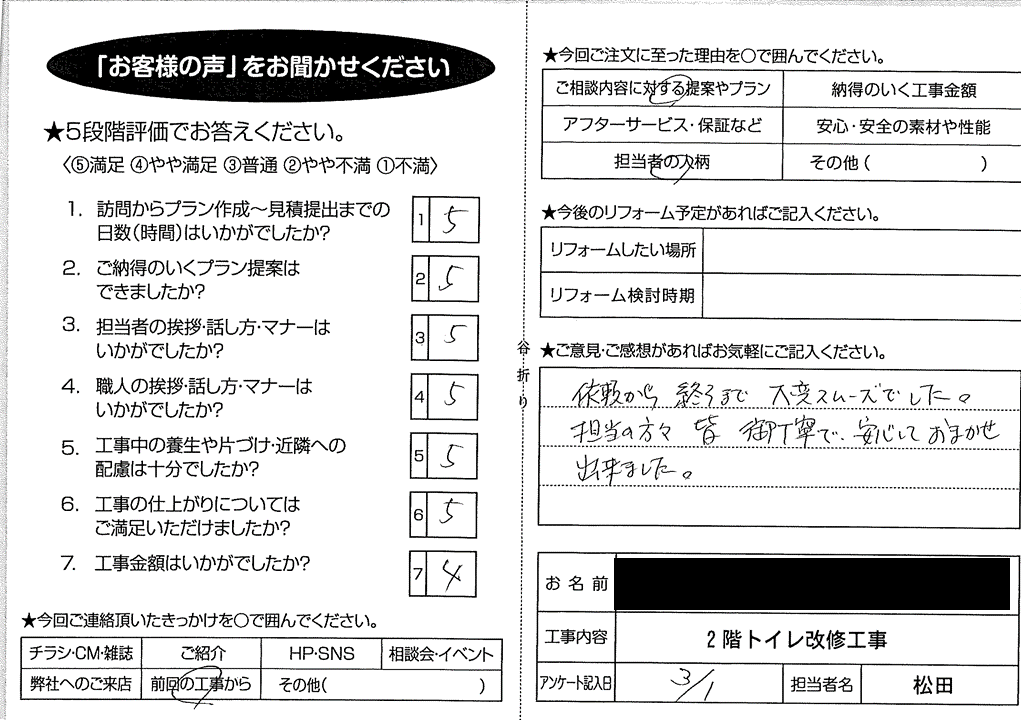 「お客様の声」をお聞かせください
★5段階評価でお答えください。
〈⑤満足 ④やや満足 ③普通 ②やや不満 ①不満〉
1. 訪問からプラン作成〜見積提出までの
日数(時間)はいかがでしたか?
1 5
2. ご納得のいくプラン提案は
できましたか?
2 5
3. 担当者の挨拶・話し方・マナーは
いかがでしたか?
3 5
4. 職人の挨拶・話し方・マナーは
いかがでしたか?
4 5
5. 工事中の養生や片づけ・近隣への
配慮は十分でしたか?
5 5
6. 工事の仕上がりについては
ご満足いただけましたか?
6 5
7. 工事金額はいかがでしたか?
7 4
★今回ご連絡頂いたきっかけを○で囲んでください。
チラシ・CM・雑誌 ご紹介 HP・SNS 相談会・イベント
弊社へのご来店 前回の工事から その他( )
谷折り
★今回ご注文に至った理由を○で囲んでください。
ご相談内容に対する提案やプラン 納得のいく工事金額
アフターサービス・保証など 安心・安全の素材や性能
担当者の人柄 その他( )
★今後のリフォーム予定があればご記入ください。
リフォームしたい場所
リフォーム検討時期
★ご意見・ご感想があればお気軽にご記入ください。
依頼から 終るまで 大変スムーズでした。
担当の方々 皆 御丁寧で、安心しておまかせ
出来ました。
お名前
工事内容 2階トイレ改修工事
アンケート記入日 3/1 担当者名 松田